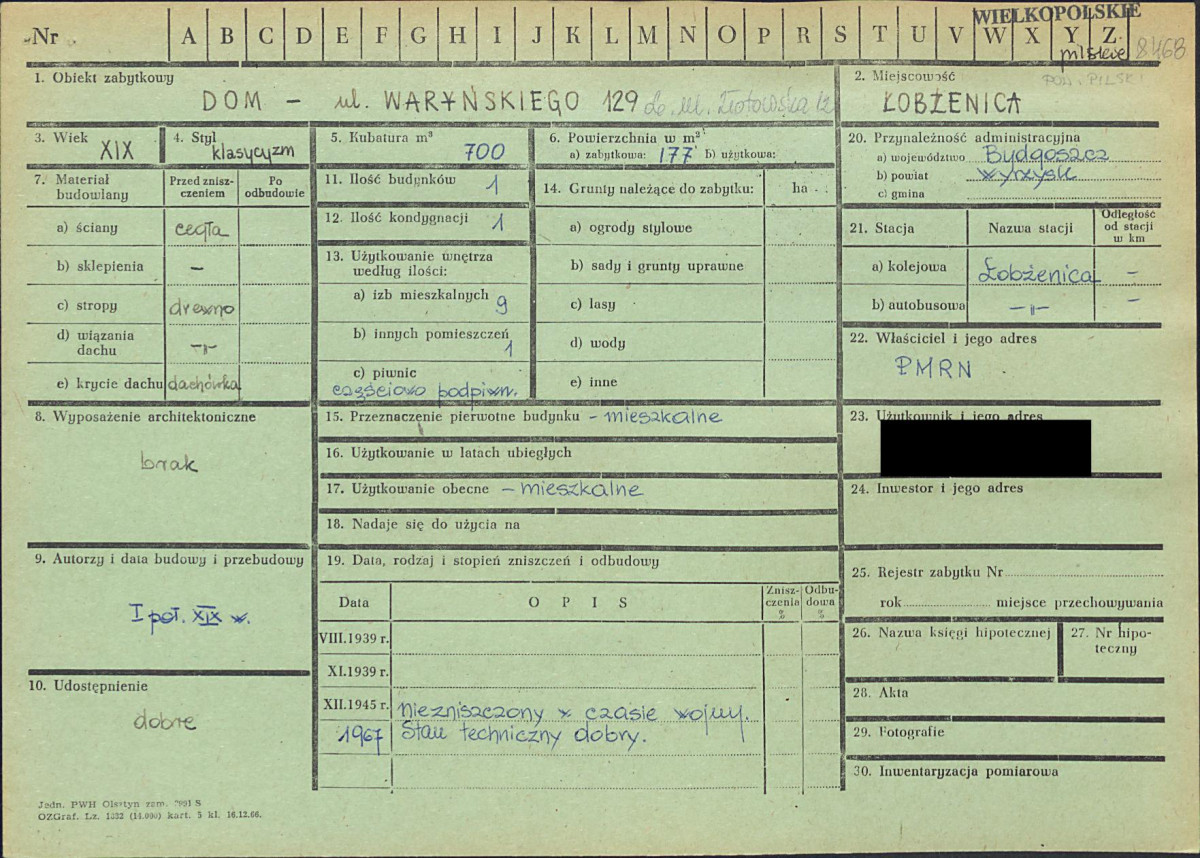 Nr A B C D E F G H I J K L M N O P R S T U V W X Y Z
WIELKOPOLSKIE
pilskie 8468
1. Obiekt zabytkowy
DOM – ul. WARYŃSKIEGO 129 ul. Złotowska 12
2. Miejscowość
POW. PILSKI
ŁOBŻENICA
3. Wiek
XIX
4. Styl
klasycyzm
5. Kubatura m³
700
6. Powierzchnia w m²
a) zabytkowa: 177 b) użytkowa:
7. Materiał budowlany
Przed zniszczeniem
Po odbudowie
a) ściany cegła
b) sklepienia –
c) stropy drewno
d) wiązania dachu –"–
e) krycie dachu dachówka
8. Wyposażenie architektoniczne
brak
9. Autorzy i data budowy i przebudowy
I poł. XIX w.
10. Udostępnienie
dobre
11. Ilość budynków 1
12. Ilość kondygnacji 1
13. Użytkowanie wnętrza
według ilości:
a) izb mieszkalnych 9
b) innych pomieszczeń
1
c) piwnic
częściowo podpiwn.
14. Grunty należące do zabytku: ha
a) ogrody stylowe
b) sady i grunty uprawne
c) lasy
d) wody
e) inne
15. Przeznaczenie pierwotne budynku – mieszkalne
16. Użytkowanie w latach ubiegłych
17. Użytkowanie obecne – mieszkalne
18. Nadaje się do użycia na
19. Data, rodzaj i stopień zniszczeń i odbudowy
Data O P I S Zniszczenia % Odbudowa %
VIII.1939 r.
XI.1939 r.
XII.1945 r. Niezniszczony w czasie wojny.
1967 Stan techniczny dobry.
20. Przynależność administracyjna
a) województwo Bydgoszcz
b) powiat Wyrzysk
c) gmina
21. Stacja Nazwa stacji Odległość od stacji w km
a) kolejowa Łobżenica –
b) autobusowa –"– –
22. Właściciel i jego adres
PMRN
23. Użytkownik i jego adres
24. Inwestor i jego adres
25. Rejestr zabytku Nr
rok miejsce przechowywania
26. Nazwa księgi hipotecznej
27. Nr hipoteczny
28. Akta
29. Fotografie
30. Inwentaryzacja pomiarowa
Jedn. PWH Olsztyn zam. 2091 S
OZGraf. Lz. 1332 (14.000) kart. 5 kl. 16.12.66.